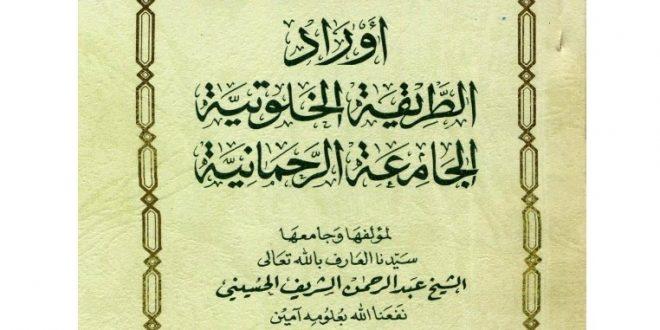 أوراد
الطريقة الخلوتية
الجامعة الرحمانية
لمؤلفها وجامعها
سيدنا العارف بالله تعالى
الشيخ عبد الرحمن الشريف الحسيني
نفعنا الله بعلومه آمين